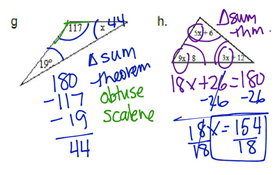 g
117
x 44
19°
180
-117
-19
44
Δ sum
theorem
obtuse
scalene
h.
Δ sum
thm
5x + 6
9x 8
3x 12
18x+26=180
-26 -26
18x = 154
18 18